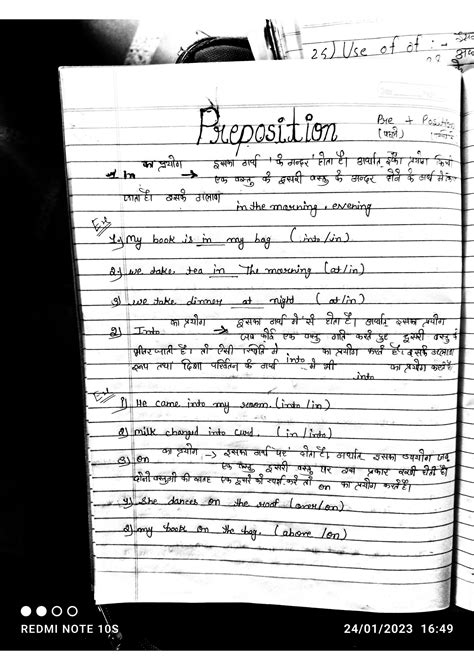 25) Use of of :-
Preposition
Pre + Position
(पहले)
1) In का प्रयोग → इसका अर्थ के अन्दर होता है। अर्थात् इसका प्रयोग किसी
एक वस्तु के दूसरी वस्तु के अन्दर होने के अर्थ में
जाता है। इसके अलावा
in the morning, evening
Ex:
1) My book is in my bag (into/in)
2) we take tea in The morning (at/in)
3) we take dinner at night (at/in)
2) Into का प्रयोग → इसका अर्थ में से होता है। अर्थात् इसका प्रयोग
जब कोई एक वस्तु गति करते हुए दूसरी वस्तु के
भीतर जाती है। तो ऐसी स्थिति में into का प्रयोग करते हैं। इसके अलावा
रूप तथा दिशा परिवर्तन के अर्थ में भी into का प्रयोग करते हैं
Ex:
1) He came into my room. (into/in)
2) milk changed into curd. (in/into)
3) on का प्रयोग → इसका अर्थ पर होता है, अर्थात् इसका उपयोग जब
एक वस्तु दूसरी वस्तु पर इस प्रकार रखी होती है।
दोनों वस्तुओं की सतह एक दूसरे को स्पर्श करे तो on का प्रयोग करते हैं।
1) She dances on the roof (over/on)
2) my book on the bag. (above/on)
REDMI NOTE 10S
24/01/2023 16:49